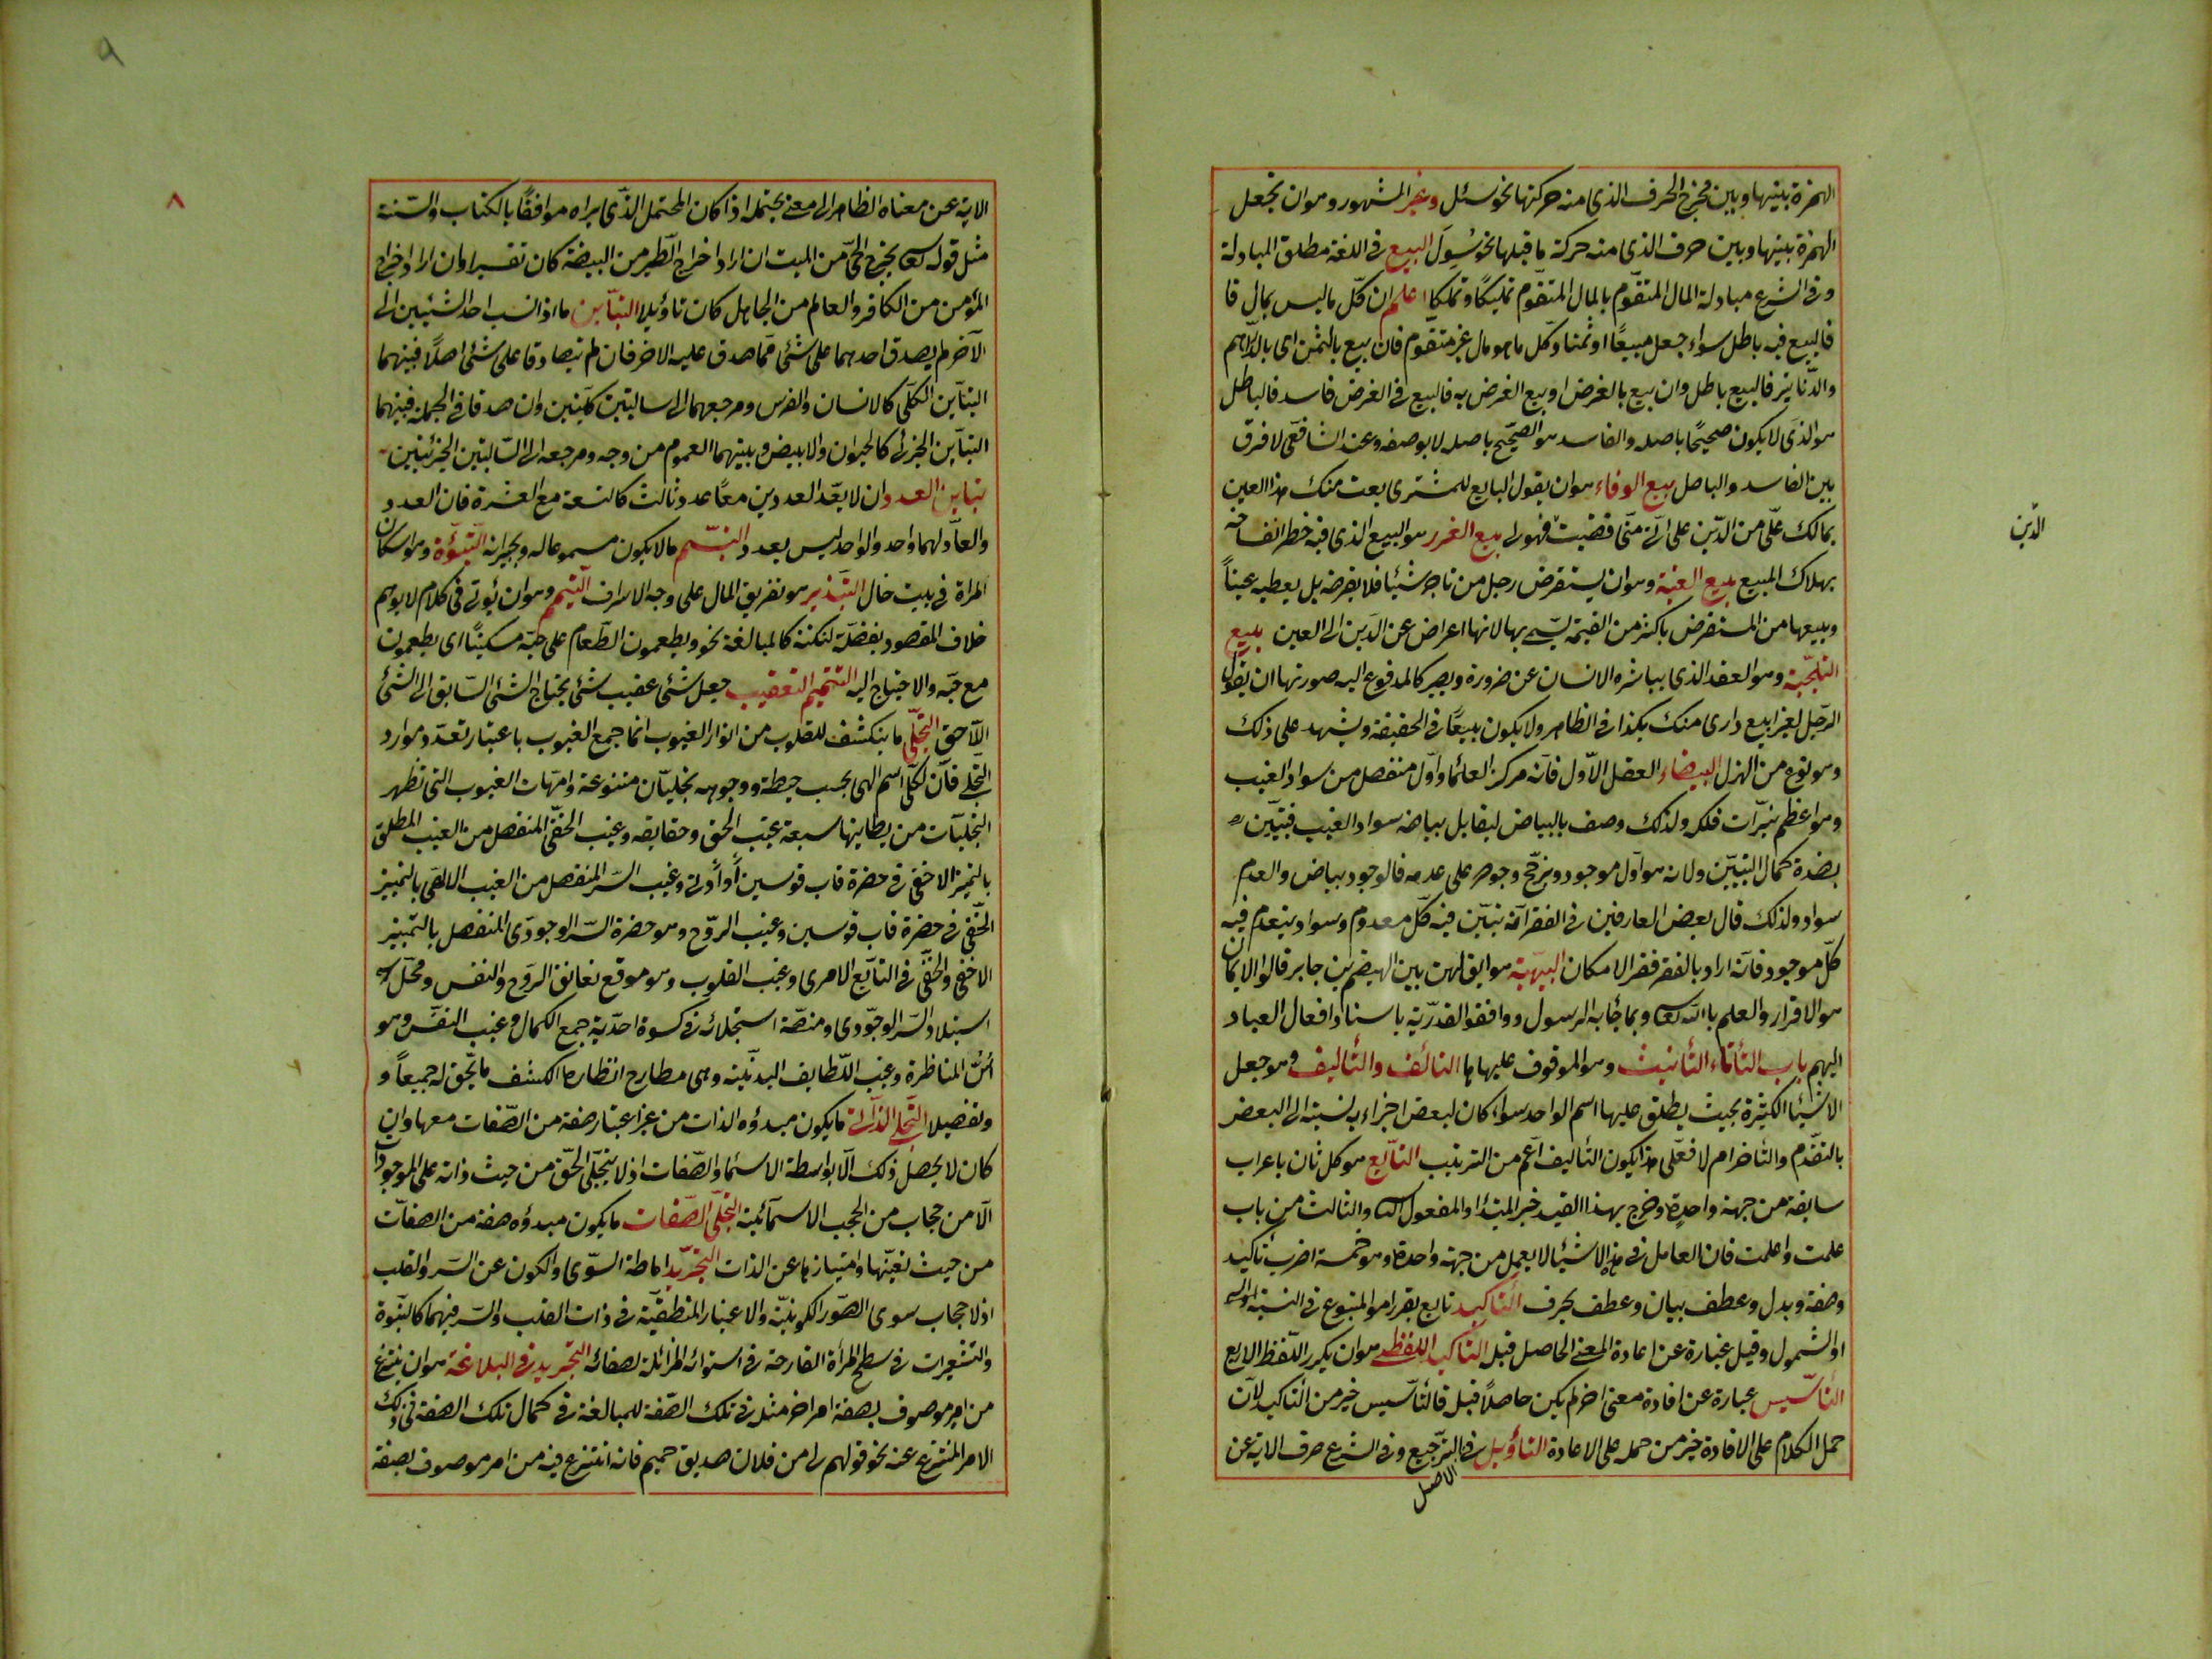 الهمزة بينها وبين مخرج الحرف الذى منه حركتها نحو سئل وغير المشهور وهو ان تجعل
الهمزة بينها وبين حرف الذى منه حركة ما قبلها نحو سُوِلَ البيع فى اللغة مطلق المبادلة
وفى الشرع مبادلة المال المتقوّم بالمال المتقوّم تمليكًا وتملكا اعلم ان كلّ ما ليس بمال فا
فالبيع فيه باطل سواء جعل مبيعًا او ثمنا وكل ما هو مال غير متقوم فان بيع بالثمن اى بالدّراهم
والدّنانير فالبيع باطل وان بيع بالعرض او بيع العرض به فالبيع فى العرض فاسد فالباطل
هو الذى لا يكون صحيحًا باصله والفاسد هو الصحيح باصله لا بوصفه وعند الشافعى لا فرق
بين الفاسد والباطل بيع الوفاء هو ان يقول البايع للمشترى بعت منك هذا العين
بمالك علىّ من الدّين على انّى متى قضيت فهو لى بيع الغرر هو البيع الذى فيه خطر انفساخه
الدّين
بهلاك المبيع بيع العينة وهو ان يستقرض رجل من تاجر شيئا فلا يقرضه بل يعطيه عينًا
ويبيعها من المستقرض باكثر من القيمة سمّى بها لانها اعراض عن الدّين الى العين بيع
التلجئة وهو العقد الذى يباشره الانسان عن ضرورة ويصير كالمدفوع اليه صورتها ان يقول
الرّجل لغيره ابيع دارى منك بكذا فى الظاهر ولا يكون بيعًا فى الحقيقة ويشهد على ذلك
وهو نوع من الهزل البيضاء العقل الاوّل فانّه مركز العلماء واول منفصل من سواد الغيب
وهو اعظم نيّرات فلكه ولذلك وصف بالبياض ليقابل بياضه سواد الغيب فيتبيّن
بضدّه كمال التبيّن ولانه هو اول موجود ويرجّح وجوده على عدمه فالوجود بياض والعدم
سواد ولذلك قال بعض العارفين فى الفقر انه يتبيّن فيه كلّ معدوم وسواد ينعدم فيه
كلّ موجود فانّه اراد بالفقر فقر الامكان البيهية هو ابى بيهس بن الهيضم بن جابر قالوا الايمان
هو الاقرار والعلم بالله تعالى وبما جاء به الرسول ووافقوا القدرية باسناد افعال العباد
اليهم باب التاء تاء التأنيث وهو الموقوف عليها ها التالف والتأليف هو جعل
الاشياء الكثيرة بحيث يطلق عليها اسم الواحد سواء كان لبعض اجزاءه نسبة الى البعض
بالتقدّم والتأخر ام لا فعلى هذا يكون التأليف اعم من الترتيب التّابع هو كل ثان باعراب
سابقه من جهة واحدة وخرج بهذا القيد خبر المبتدا والمفعول الثانى والثالث من باب
علمت واعلمت فان العامل فى هذه الاشياء لا يعمل من جهة واحدة وهو خمسة اضرب تأكيد
وصفة وبدل وعطف بيان وعطف بحرف التأكيد تابع يقرر امر المتبوع فى النسبة
او الشمول وقيل عبارة عن اعادة المعنى الحاصل قبله التاكيد اللفظى هو ان يكرر اللّفظ الاول
التأسيس عبارة عن افادة معنى اخر لم يكن حاصلاً قبله فالتأسيس خير من التأكيد لان
حمل الكلام على الافادة خير من حمله على الاعادة التاويل فى الترجيع وفى الشرع صرف الاية عن
الاصل
الاية عن معناه الظاهر الى معنى يحتمله اذا كان المحتمل الذّى يراه موافقًا بالكتاب والسّنة
مثل قوله تعالى يخرج الحىّ من الميت ان اراد اخراج الطير من البيضة كان تفسيرا وان اراد اخراج
المؤمن من الكافر والعالم من الجاهل كان تاؤيلا التباين ما اذا نسب احد الشيئين الى
الآخر لم يصدق احدهما على شئ ممّا صدق عليه الاخر فان لم يتصادقا على شئ اصلًا فبينهما
التباين الكلّى كالانسان والفرس ومرجعهما الى سالبتين كليتين وان صدقا فى الجملة فبينهما
التباين الجزئى كالحيوان والابيض وبينهما العموم من وجه ومرجعه الى السّالبتين الجزئيتين
تباين العدد ان لا يعّد العددين معًا عدد ثالث كالتسعة مع العشرة فان العدد
والعادّ لهما واحد والواحد ليس بعدد التبسّم ما لا يكون مسموعا له ولجيرانه التبوّءة وهو اسكان
المراة فى بيت خال التبذير هو تفريق المال على وجه الاسراف التتميم وهو ان يؤتى فى كلام لا يوهم
خلاف المقصود بفضلة لنكتة كالمبالغة نحو ويطعمون الطّعام على حبّه مسكينًا اى يطعمون
مع حبّه والاحتياج اليه التتميم التعقيب جعل شئ عقيب شئ يحتاج الشئ السّابق الى الشئ
اللّاحق التجلّى ما ينكشف للقلوب من انوار الغيوب انما جمع الغيوب باعتبار تعدّد موارد
التجلى فانّ لكلّ اسم الهى بحسب حيطته ووجوهه تجليّات متنوعة وامّهات الغيوب التى تظهر
التجليات من بطاينها سبعة غيب الحق وحقايقه وغيب الخفىّ المنفصل من الغيب المطلق
بالتميز الاخفى فى حضرة قاب قوسين أو أدنى وغيب السّر المنفصل من الغيب الالهى بالتمييز
الخفى فى حضرة قاب قوسين وغيب الرّوح وهو حضرة السّر الوجودى المنفصل بالتمييز
الاخفى والخفىّ فى التابع الامرى وغيب القلوب وهو موقع تعانق الروح والنفس ومحلّ
استيلاد السّر الوجودى ومنصّة استجلائه فى كسوة احديّة جمع الكمال وغيب النفس وهو
أنسُ المناظرة وغيب اللّطايف البدنيّة وهى مطارح انظاره لكشف ما يحق له جميعاً و
وتفصيلا التجلى الذاتى ما يكون مبدؤه الذات من غير اعتبار صفة من الصّفات معها وان
كان لا يحصل ذلك الّا بواسطة الاسماء والصّفات اذ لا يتجلّى الحقّ من حيث ذاته على الموجودات
الّا من حجاب من الحجب الاسمآئية التجلّى الصّفات ما يكون مبدؤه صفة من الصفات
من حيث تعيّنها وامتيازها عن الذات التجريد اماطة السّوى والكون عن السّر والقلب
اذ لا حجاب سوى الصّور الكونيّة والاغيار المنطقيّة فى ذات القلب والسّر فيهما كالنتوة
والتشعيرات فى سطح المرآة القادحة فى استوائه المزائلة لصفائه التجريد فى البلاغة هو ان ينتزع
من امر موصوف بصفة امر اخر مثله فى تلك الصّفة للمبالغة فى كمال تلك الصفة فى ذلك
الامر المنتزع عنه نحو قولهم لى من فلان صديق حميم فانه انتزع فيه من امر موصوف بصفة